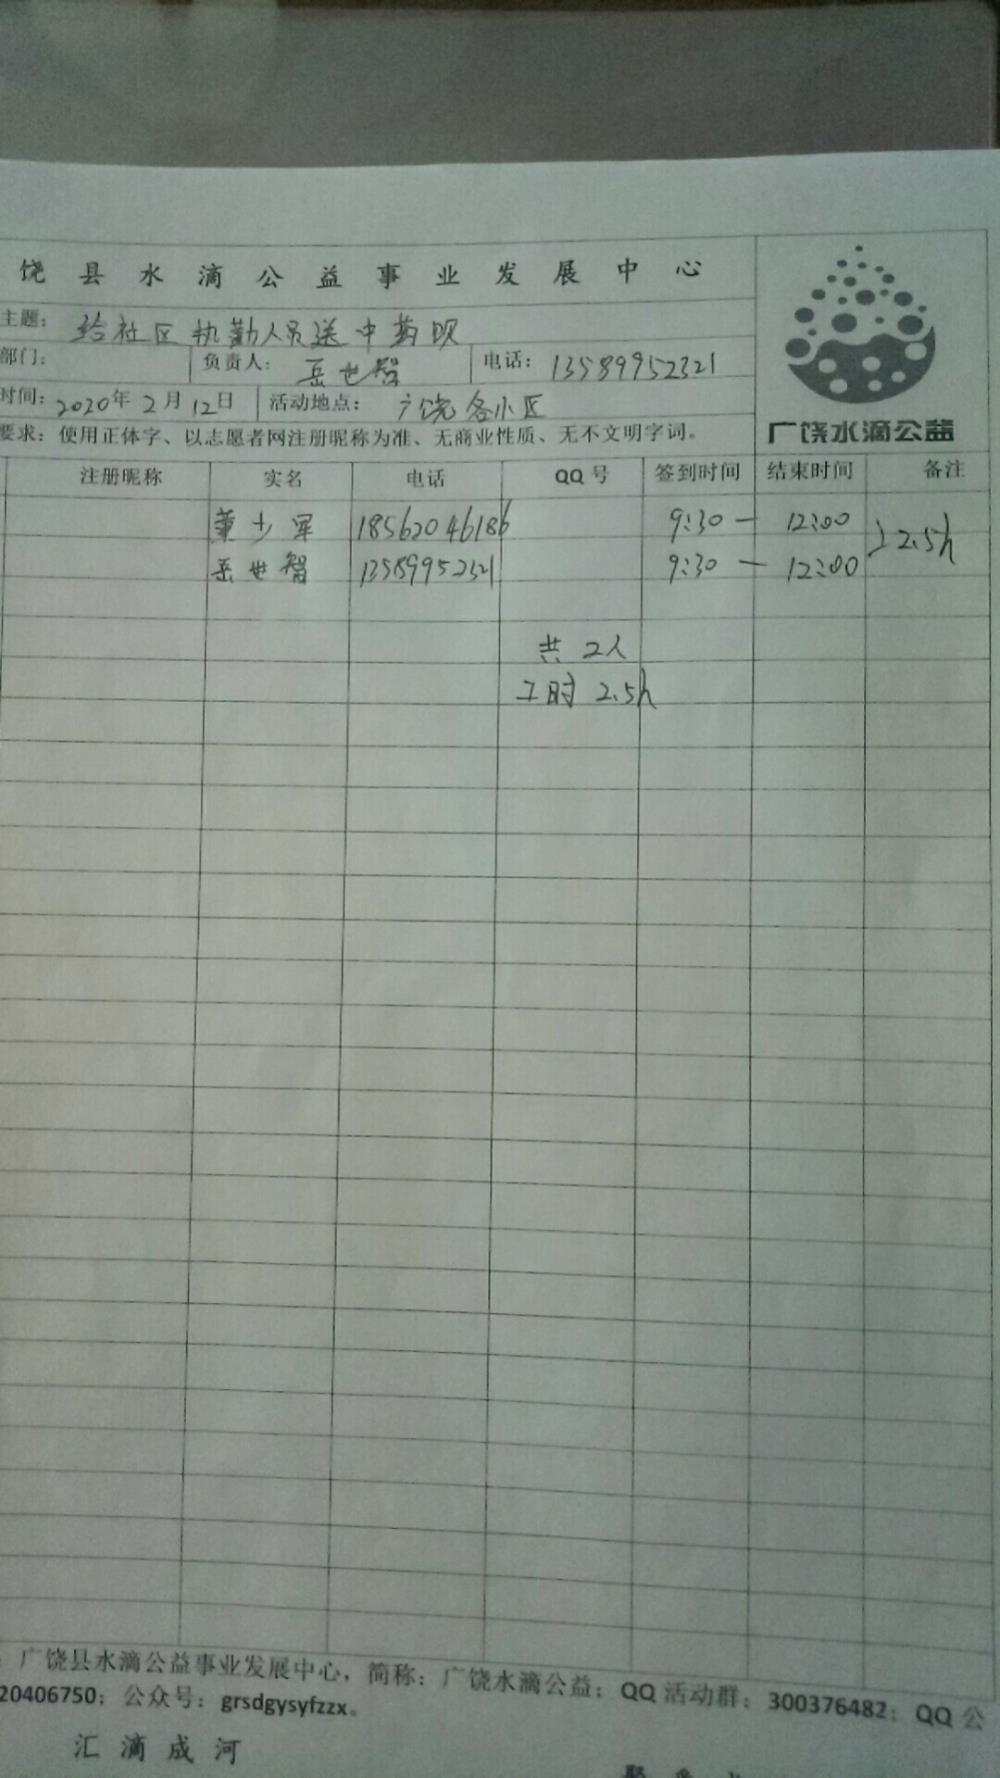 饶县水滴公益事业发展中心
主题: 给社区执勤人员送中药呗
部门: 负责人: 岳世智 电话: 13589952321
时间: 2020年2月12日 活动地点: 广饶各小区
广饶水滴公益
要求: 使用正体字、以志愿者网注册昵称为准、无商业性质、无不文明字词。
注册昵称 实名 电话 QQ号 签到时间 结束时间 备注
董少军 18562046186 9:30 — 12:00
岳世智 13589952321 9:30 — 12:00
2.5h
共 2人
工时 2.5h
广饶县水滴公益事业发展中心, 简称: 广饶水滴公益; QQ活动群: 300376482; QQ公
20406750; 公众号: grsdgysyfzzx。
汇滴成河